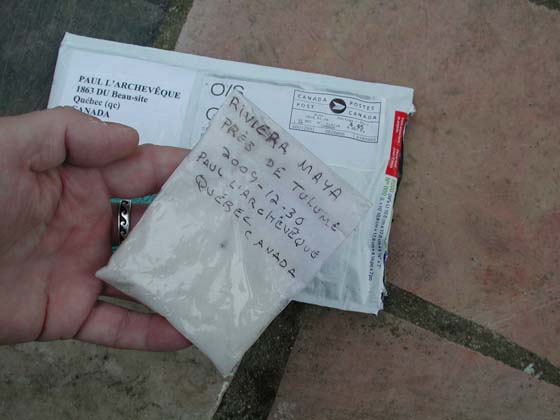 PAUL L'ARCHEVÊQUE
1863 DU Beau-site
Québec (qc)
CANADA
O/S
CANADA POSTES
POST CANADA
RIVIERA MAYA
PRÈS DE TULUME
2009-12-30
PAUL L'ARCHEVÊQUE
QUÉBEC
CANADA